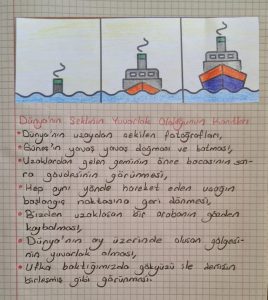 Dünya'nın Şeklinin Yuvarlak Olduğunun Kanıtları
• Dünya'nın uzaydan çekilen fotoğrafları,
• Güneş'in yavaş yavaş doğması ve batması,
• Uzaklardan gelen geminin önce bacasının son-
ra gövdesinin görünmesi,
• Hep aynı yönde hareket eden uçağın
başlangıç noktasına geri dönmesi,
• Bizden uzaklaşan bir arabanın gözden
kaybolması,
• Dünya'nın ay üzerinde oluşan gölgesi-
nin yuvarlak olması,
• Ufka baktığımızda gökyüzü ile denizin
birleşmiş gibi görünmesi.